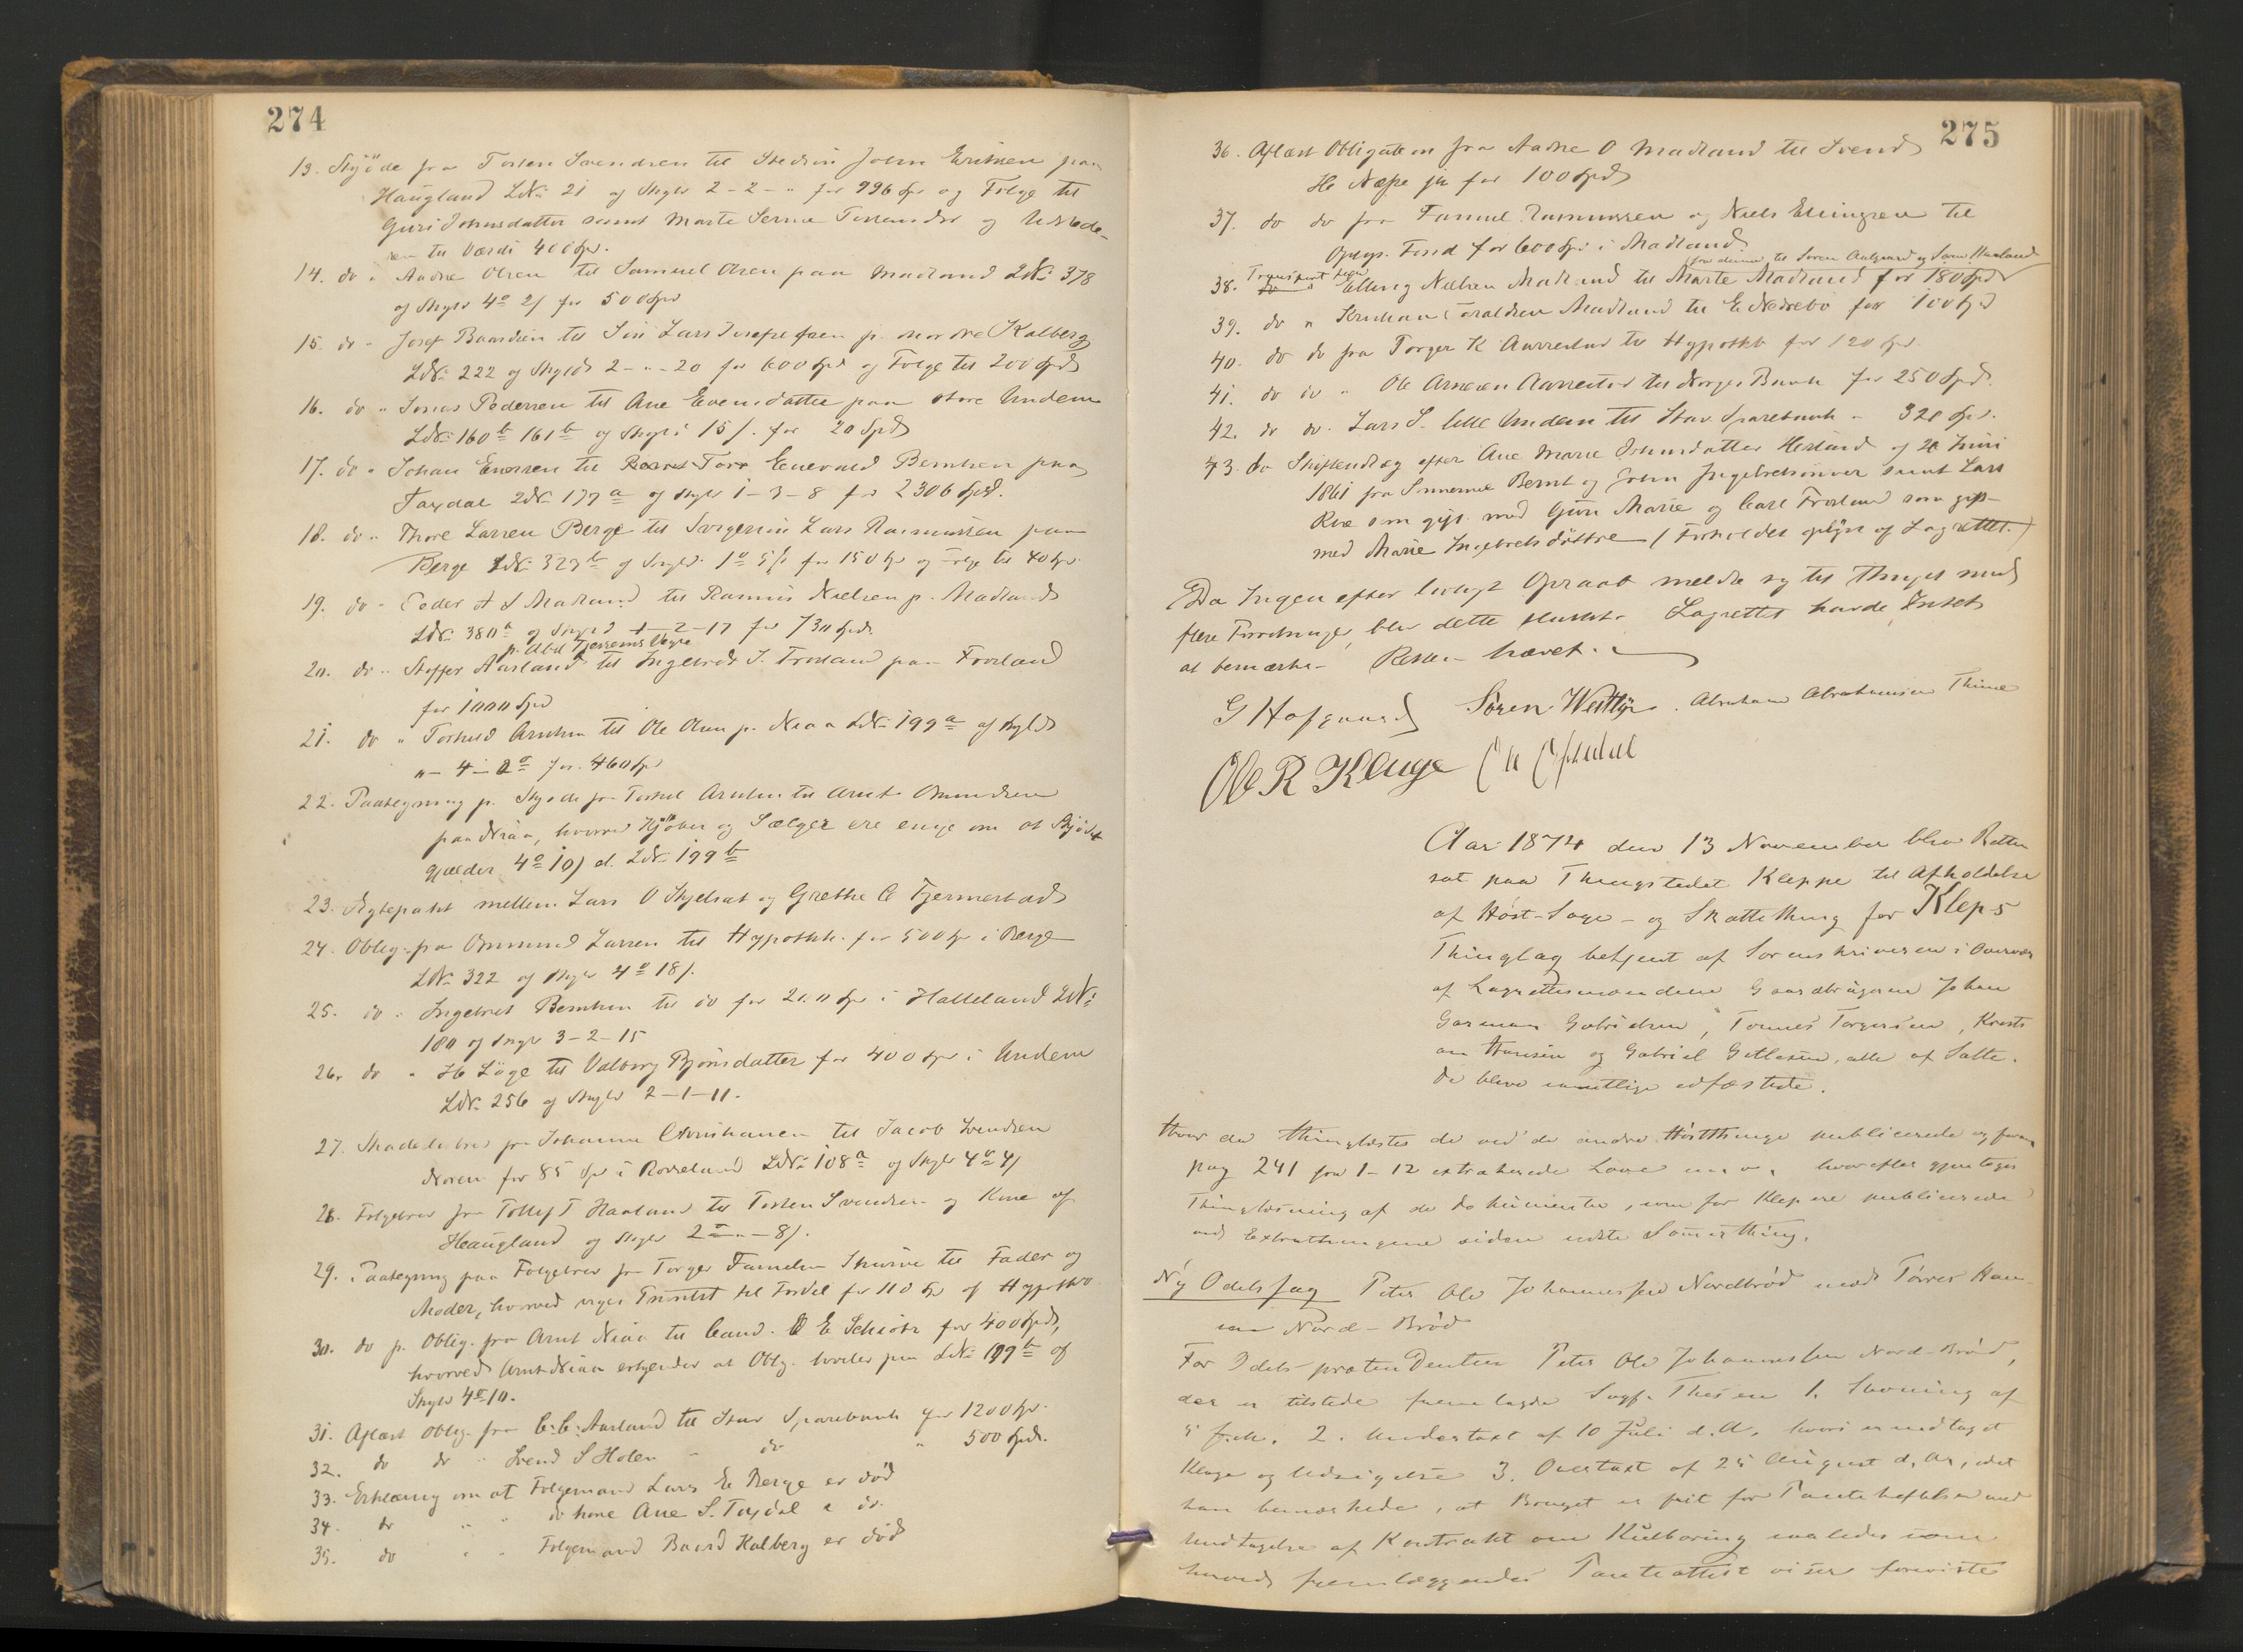 274
13. Skjöde fra Torsten Svendsen til Stedsön John Eriksen paa
Haugland LNr. 21 og Skyld 2-2-" for 996 Spd og Folge til
Guri Johnsdatter samt Marte Serine og
til Værdi 400 Spd.
14. do " Aadne Olsen til Samuel Olsen paa Madland LNr. 378
og Skyld 4o 2/ for 500 Spd
15. do " Josef Baardsen til Sön Lars Josefsen p. nordre Kalberg
LNr. 222 og Skyld 2-"-20 for 600 Spd og Folge til 200 Spd
16. do " Jonas Pedersen til Ane Evensdatter paa store Undem
LNr. 160b 161b og Skyld 15/. for 20 Spd
17. do " Johan Enersen til Tore Enevald Berntsen paa
Taxdal LNr. 177a og Skyld 1-3-8 for 2306 Spd.
18. do " Thore Larsen Berge til Svigersön Lars Rasmussen paa
Berge LNr. 323b og Skyld 1o 5/ for 150 Spd og Folge til 40 Spd.
19. do " Peder A S Madland til Rasmus Nielsen p. Madland
LNr. 380a og Skyld 1-2-17 for 730 Spd.
p. Abel Tjessems Vegne
20. do " Steffer Aarland til Ingebret J. Frosland paa Frosland
for 1000 Spd
21. do " Torkild Arntsen til Ole Olsen p. Niaa LNr. 199a og Skyld
"-4-2o for 460 Spd
22. Paategning p. Skjöde fra Torkel Arntsen til Arnt Ommundsen
paa Niaa, hvorved Kjöber og Sælger ere enige om at Skjödet
gjælder 4o 10/ el. LNr. 199b
23. Ægtepakt mellem Lars O Skjelsat og Grethe O Tjermestad
24. Oblig. fra Ommund Larsen til Hypothk. for 500 Spd i Berge
LNr. 322 og Skyld 4o 18/.
25. do " Ingebret Berntsen til do for 200 Spd i Halleland LNr.
180 og Skyld 3-2-15
26. do " H Löge til Valborg Bjönsdatter for 400 Spd i Undem
LNr. 256 og Skyld 2-1-11.
27. Skadeslbrev fra Johanne Christiansen til Jacob Svendsen
Noren for 85 Spd i Rosseland LNr. 108a og Skyld 4o 4/
28. Folgebrev fra Tollef T Haaland til Torsten Svendsen og Kone af
Haugland og Skyld 2-"-8/.
29. Paategning paa Folgebrev fra Torger Skurve til Fader og
Moder, hvorved viges Prioritet til Fordel for 110 Spd af Hypothkb.
30. do p. Oblig. fra Arnt Niaa til Cand. E Schiötz for 400 Spd,
hvorved Arnt Niaa erkjender at Oblig. hviler paa LNr. 199b af
Skyld 4o 10.
31. Aflæst Oblig. fra C. C. Aarland til Stav Sparebank for 1200 Spd.
32. do do " Svend S Holen " do " 500 Spd.
33. Erklæring om at Folgemand Lars E. Berge er död
34. do " " do kone Ane S. Taxdal " do.
35. do " " Folgemand Baard Kalberg er död
275
36. Aflæst Obligation fra Aadne O Madland til Svend
H Næse jn for 100 Spd
37. do do fra Rasmussen og Niels Ellingsen til
Oplys. Fond for 600 Spd i Madland.
fra denne til Soren Aalgaard og Sven Haaland
38. Transport fra Elling Nielsen Madland til Marte Madland for 180 Spd
39. do " Kristian Madland til E Nedrebö for 100 Spd
40. do do fra Torger K Aarrestad til Hypothkb for 120 Spd.
41. do do " Ole Arnesen Aarrestad til Norges Bank for 250 Spd.
42. do do. Lars S. lille Undem til Stav. Sparebank " 320 Spd.
43. do Skifteudlæg efter Ane Marie Johnsdatter Herland af 2 Juni
1861 fra Sönnerne Bernt og John Ingebretsönner samt Lars
som gift med Guri Marie og Carl Frosland som gift
med Marie Ingebretsdöttre (Forholdet oplyst af Lagrettet.)
Da Ingen efter lovligt Opraab meldte sig til Thinget med
flere Forretninger, blev dette sluttet. Lagrettet havde Intet
at bemærke. Retten hævet.
G Hofgaard Sören Westlye. Abraham Abrahamsen Thime
Ole R Kluge
Aar 1874 den 13 November blev Retten
sat paa Thingstedet Kleppe til Afholdelse
af Höst-Sage- og Skattething for Kleps
Thinglag betjent af Sorenskriveren i Overvær
af Lagrettesmændene Gaardbrugerne Johan
Garman Gabrielsen, Tönnes Torgersen, Kristi-
an Hansen og Gabriel Gitlesen, alle af Salte.
De bleve samtlige edfæstede.
Hvor da thinglæstes de ved de andre Höstthinge publicerede og foran
pag 241 fra 1-12 extraherede Love m. v., hvorefter gjentoges
Thinglæsning af de dokumenter, som for Klep ere publicerede
ved Extrathingene siden sidste Sommerthing.
Ny Odelssag Peter Olv Johannessen Nordbröd mod Törres Han-
sen Nord-Bröd
For Odelsprætendenten Peter Olv Johannessen Nord-Bröd,
der er tilstede fremlagde Sagf. Thesen 1. Stevning af
5 f.M. 2. Undertaxt af 10 Juli d.A. hvori er indtaget
Klage og Udsigelse 3. Overtaxt af 25 August d. Ar, idet
han bemærkede, at Bruget er frit for Pantehæftelse med
Undtagelse af Kontrakt om Kulboring saaledes som
herved fremlæggendes Panteattest viser foreviste